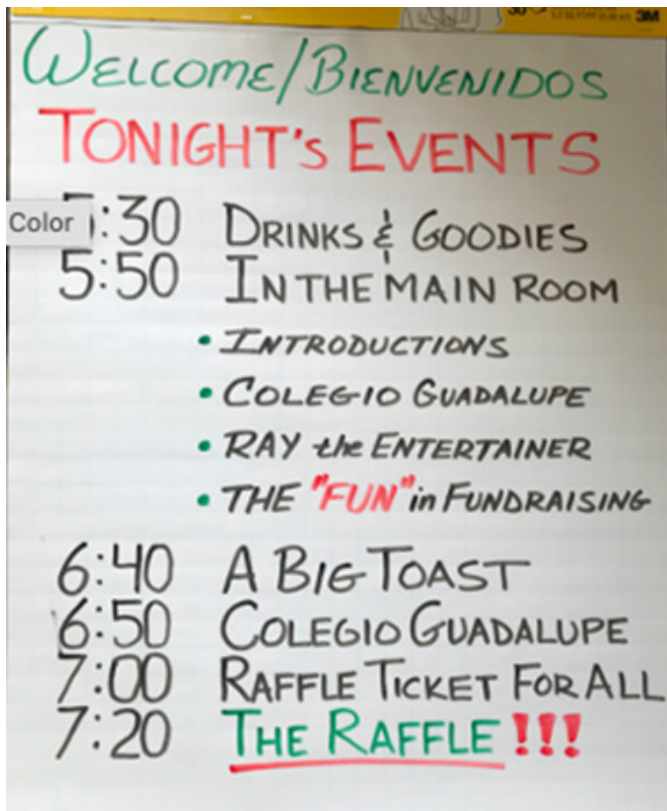 3M
WELCOME/BIENVENIDOS
TONIGHT'S EVENTS
Color :30 DRINKS & GOODIES
5:50 IN THE MAIN ROOM
• INTRODUCTIONS
• COLEGIO GUADALUPE
• RAY the ENTERTAINER
• THE "FUN" in FUNDRAISING
6:40 A BIG TOAST
6:50 COLEGIO GUADALUPE
7:00 RAFFLE TICKET FOR ALL
7:20 THE RAFFLE !!!